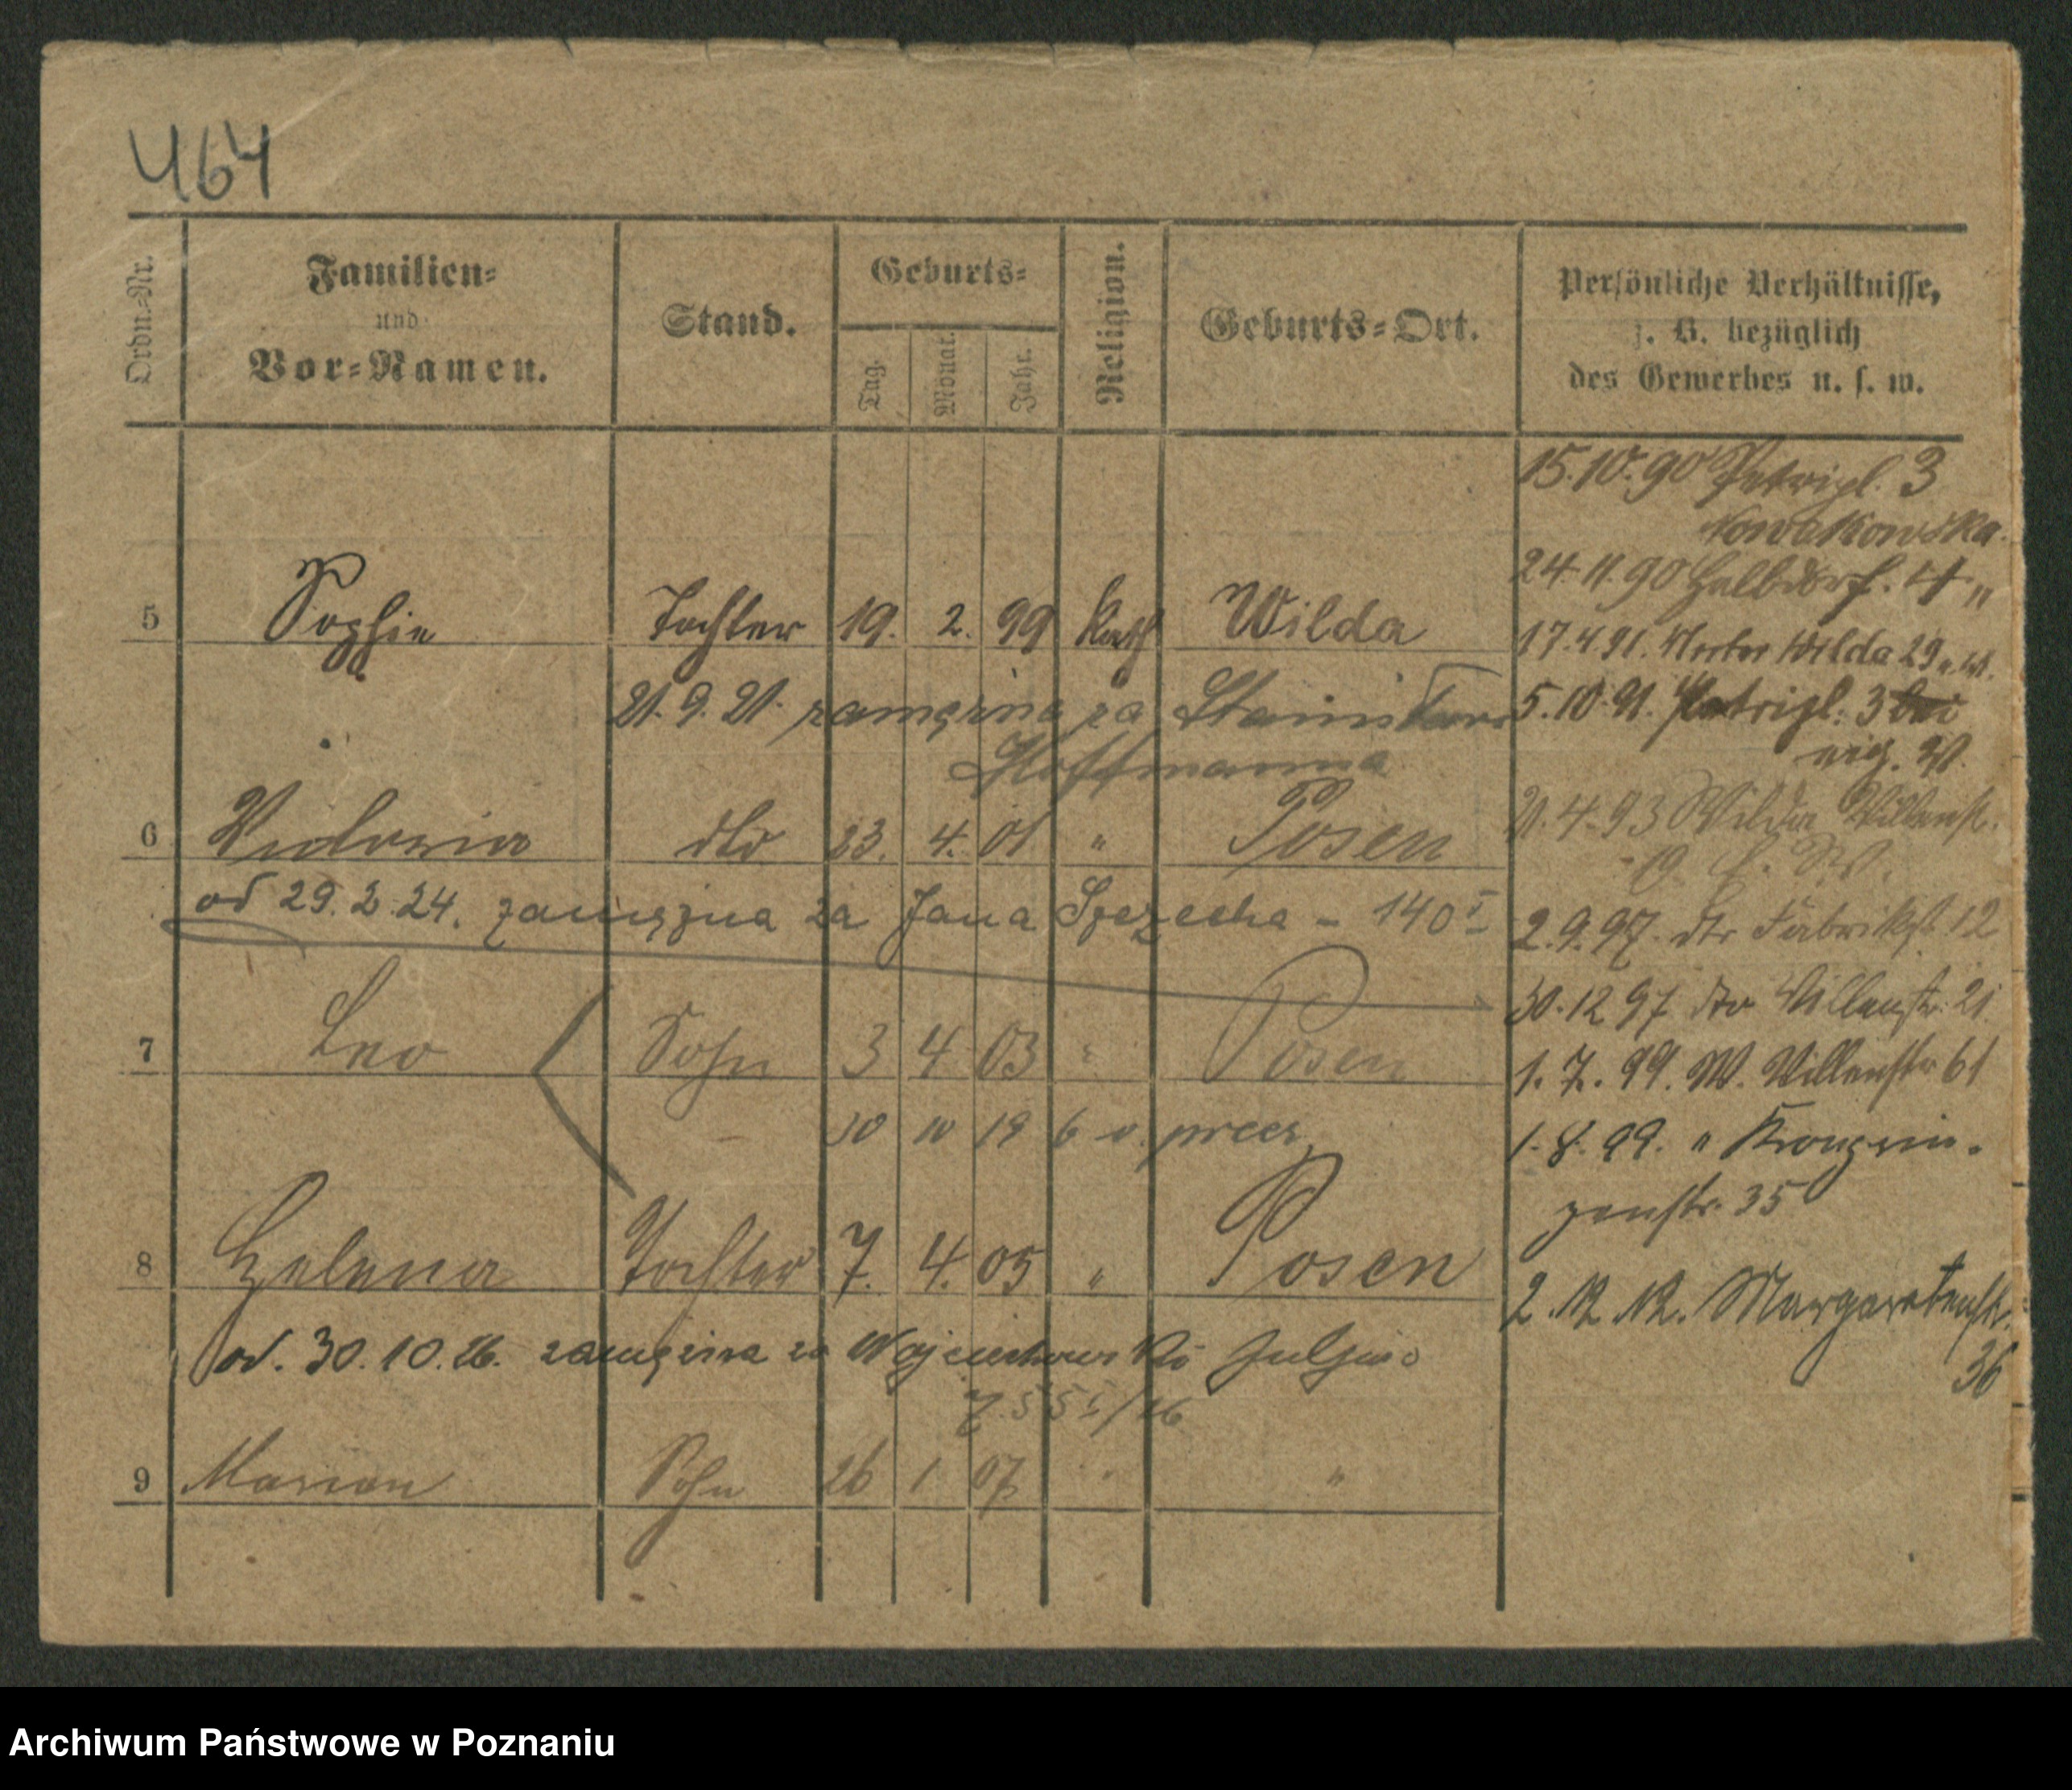 464
Ordn.-Nr.
Familien-
und
Vor-Namen.
Stand.
Geburts-
Tag.
Monat.
Jahr.
Religion.
Geburts-Ort.
Persönliche Verhältnisse,
z. B. bezüglich
des Gewerbes u. s. w.
15.10.90 Petripl. 3
Nowakowska
24.11.90 Halbdorf. 4 "
5 Sophie Tochter 19. 2. 99 kath Wilda
17.4.91. Wilda 29
21.9.21. zamężna za Stanisława
Hoffmanna
5.10.91. Petripl. 3 bei
6 Victoria dto 23. 4. 01 " Posen
21.4.93 Wilda Villenst.
od 29.2.24. zamężna za Jana Szezecha - 140 I
2.9.97. dto Fabrikst. 12
30.12 97 dto Villenstr. 21
7 Leo Sohn 3 4 03 " Posen
1.7.99. W. Villenstr 61
30 10 19 6 v. preez
1.8.99. " Kronprin-
zenstr. 35
8 Helena Tochter 7. 4. 05 " Posen
2.12.12. Margaretenstr.
36
od. 30.10.26. zamężna za Wojciechowski Juljan
755 I/26
9 Marian Sohn 26 1 07 " "
Archiwum Państwowe w Poznaniu